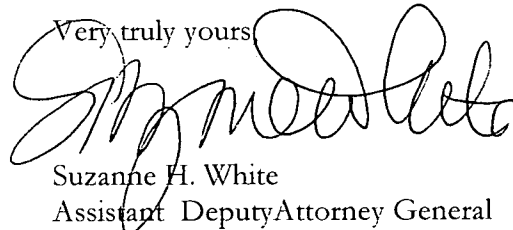 Very truly yours,
Suzanne White
Suzanne H. White
Assistant DeputyAttorney General